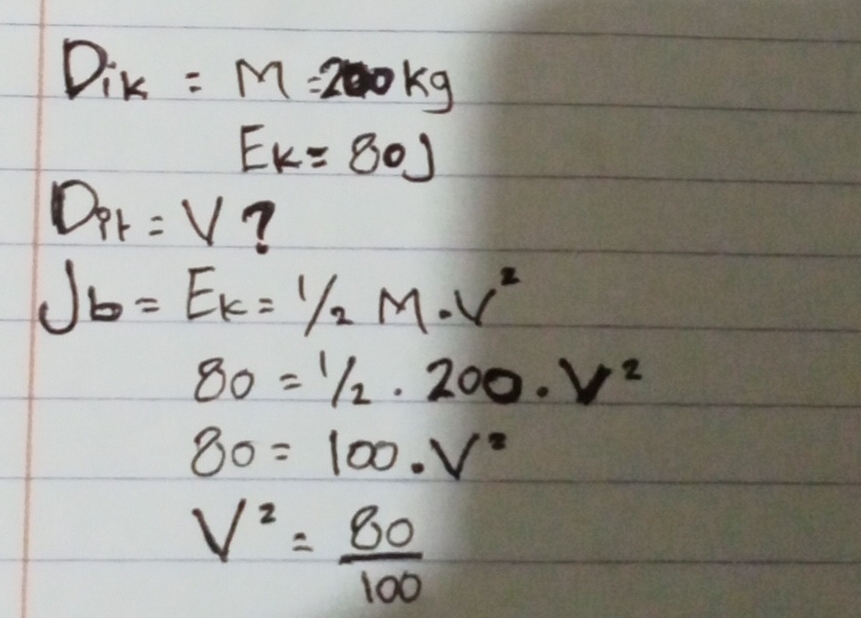 Dik = M = 200 kg
Ek = 80 J
Dit = V ?
Jb = Ek = 1/2 M . V²
80 = 1/2 . 200 . V²
80 = 100 . V²
V² = 80/100